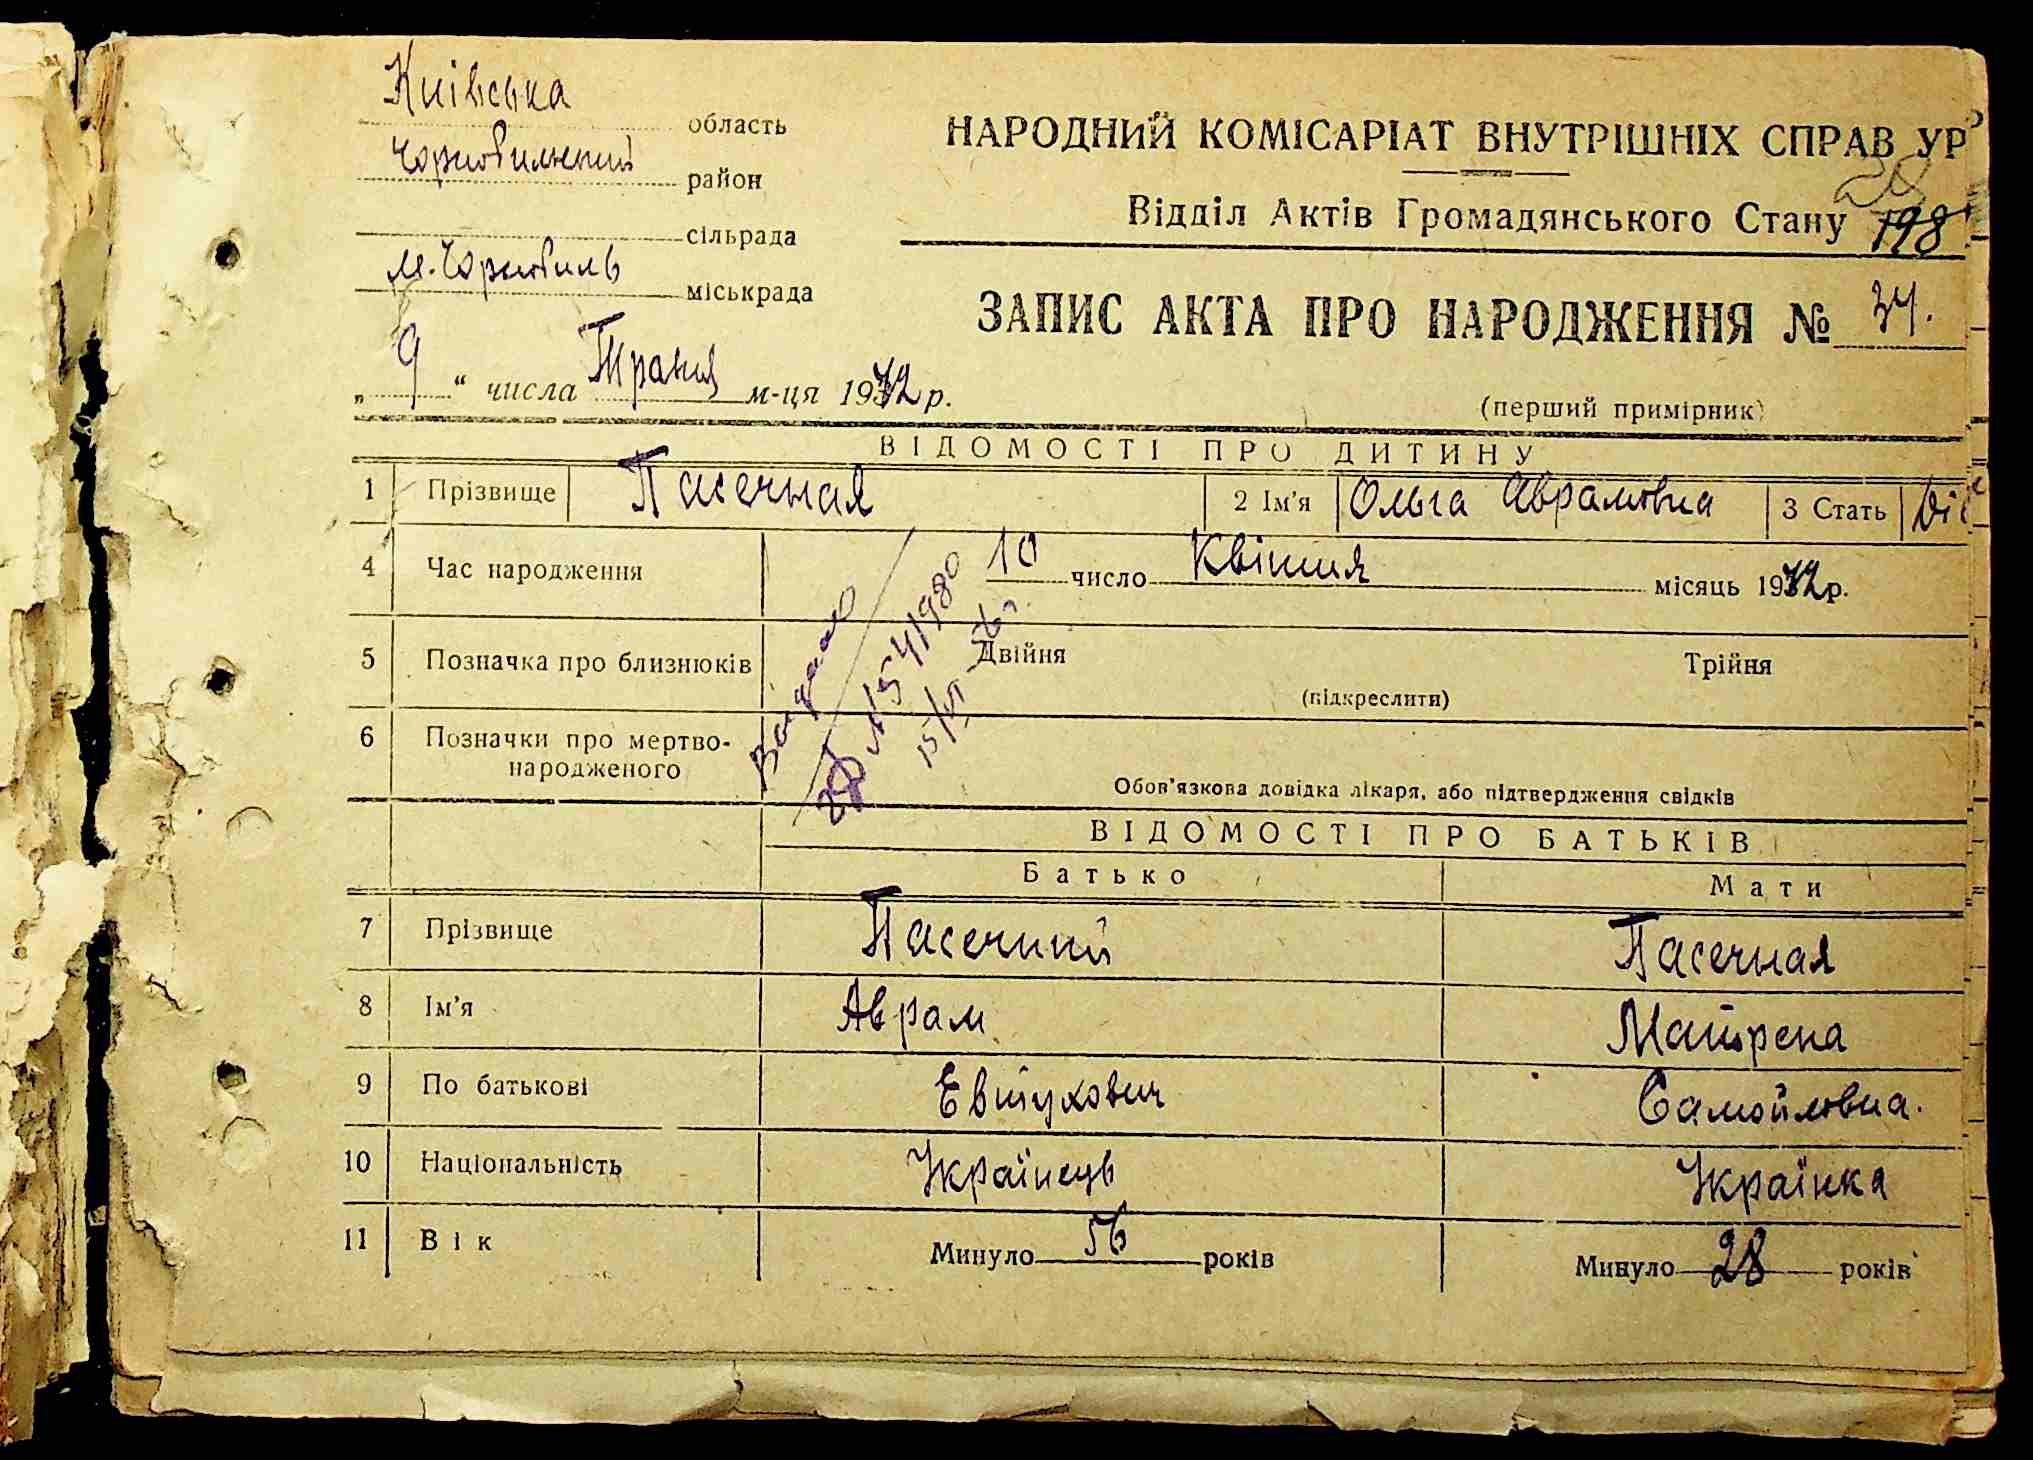 Київська область
Чорнобильский район
сільрада
м. Чорнобиль міськрада
„ 9 “ числа Травня м-ця 1942 р.
НАРОДНИЙ КОМІСАРІАТ ВНУТРІШНІХ СПРАВ УР
Відділ Актів Громадянського Стану
198
ЗАПИС АКТА ПРО НАРОДЖЕННЯ № 34.
(перший примірник)
ВІДОМОСТІ ПРО ДИТИНУ
1 Прізвище Пасечная 2 Ім'я Ольга Аврамовна 3 Стать
4 Час народження 10 число Квітня місяць 1942 р.
5 Позначка про близнюків Двійня Трійня
(підкреслити)
6 Позначки про мертво-
народженого
Обов'язкова довідка лікаря, або підтвердження свідків
ВІДОМОСТІ ПРО БАТЬКІВ
Батько Мати
7 Прізвище Пасечний Пасечная
8 Ім'я Аврам Матрена
9 По батькові Евтухович Самойловна.
10 Національність Українець Українка
11 Вік Минуло 56 років Минуло 28 років